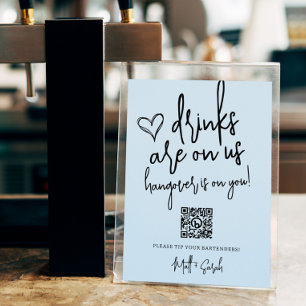 drinks
are on us
hangover is on you!
PLEASE TIP YOUR BARTENDERS!
Matt + Sarah